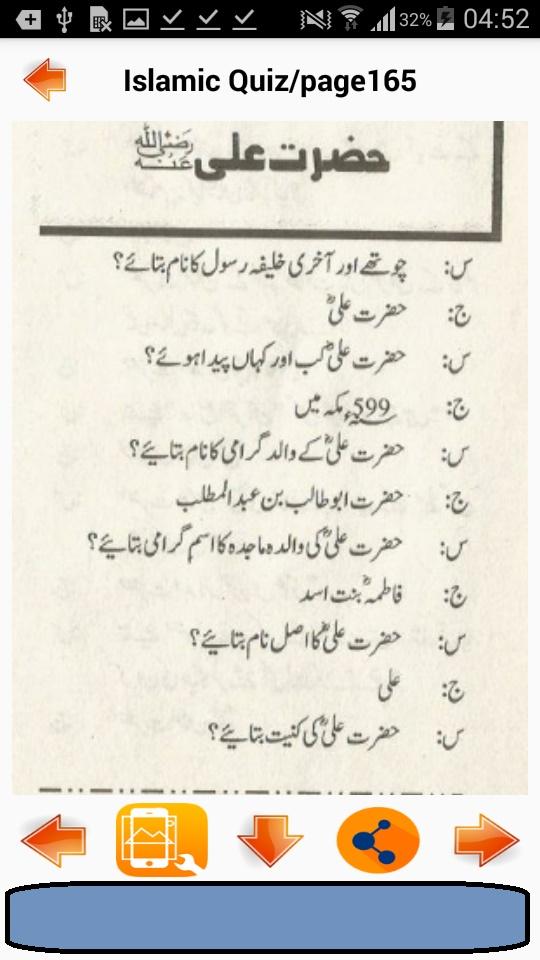 32% 04:52
Islamic Quiz/page165
حضرت علی رضی اللہ عنہ
س: چوتھے اور آخری خلیفہ رسول کا نام بتائے؟
ج: حضرت علیؓ
س: حضرت علیؓ کب اور کہاں پیدا ہوئے؟
ج: 599ء مکہ میں
س: حضرت علیؓ کے والد گرامی کا نام بتایئے؟
ج: حضرت ابو طالب بن عبدالمطلب
س: حضرت علیؓ کی والدہ ماجدہ کا اسم گرامی بتایئے؟
ج: فاطمہؓ بنت اسد
س: حضرت علیؓ کا اصل نام بتایئے؟
ج: علی
س: حضرت علیؓ کی کنیت بتایئے؟